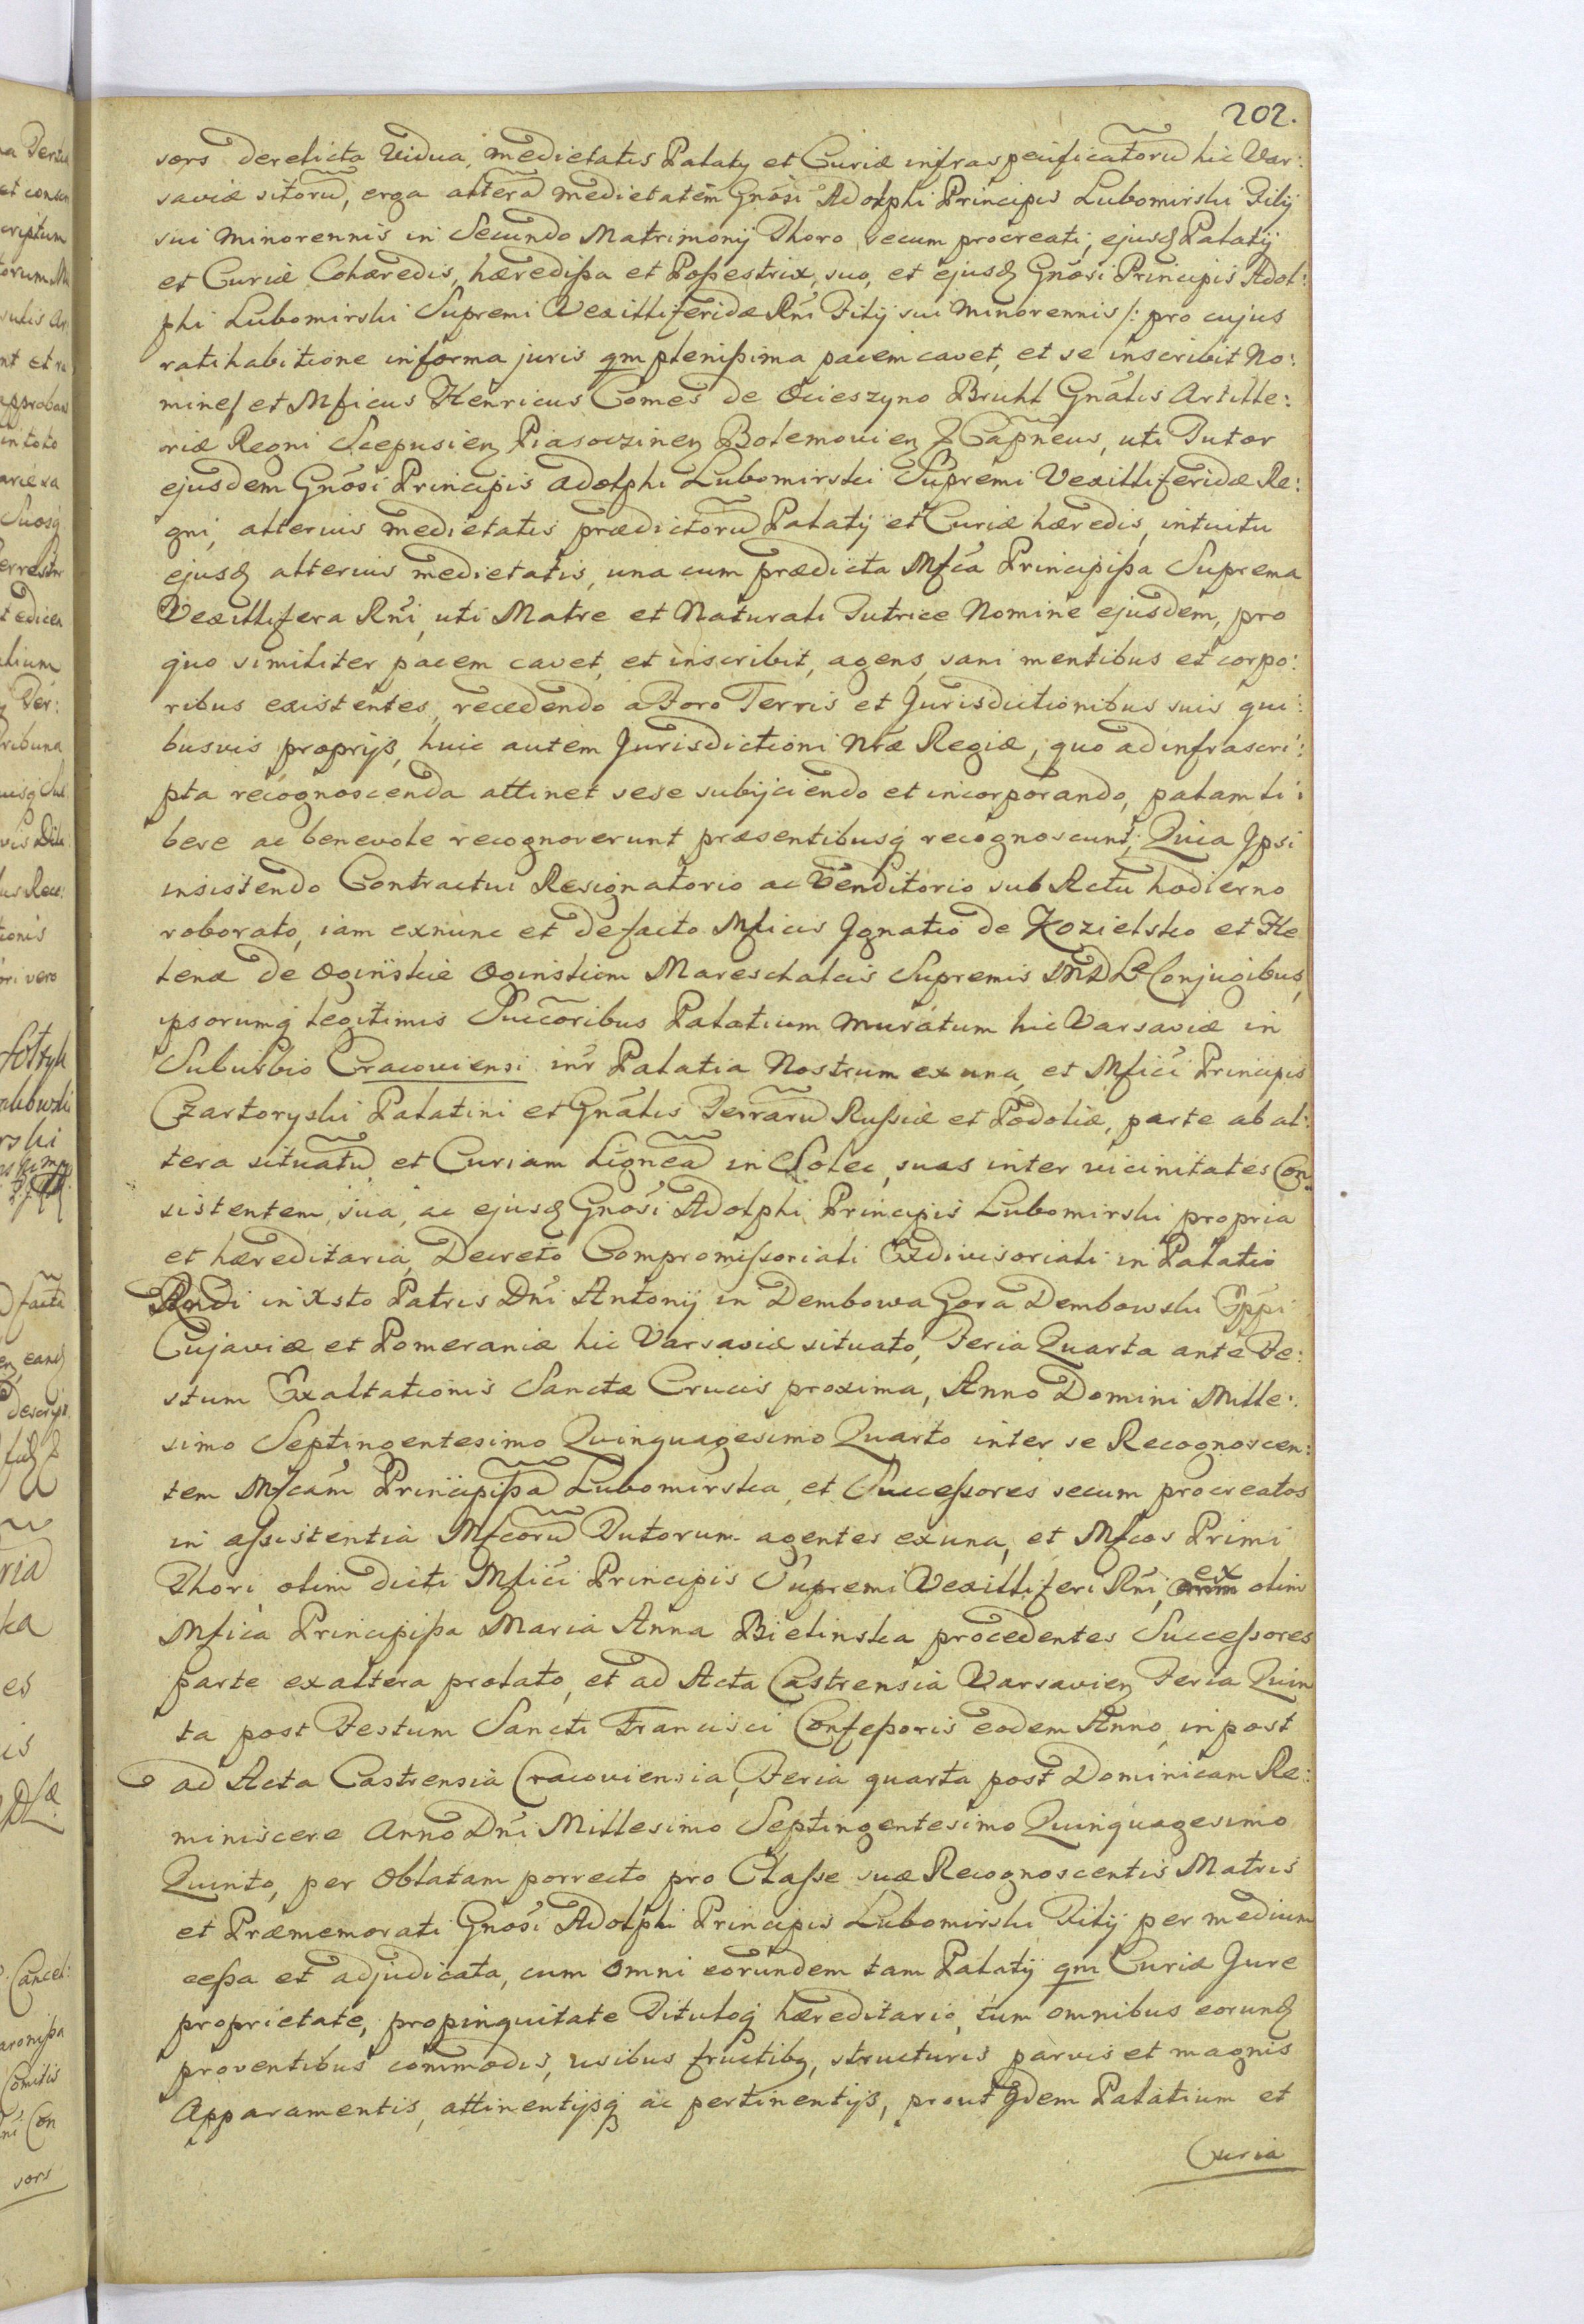 202.
sors derelicta Vidua, medietatis Palatÿ et Curiæ infraspecificatorũ hic Var:
saviæ sitorũ, erga alterã medietatem Gnosi Adolphi Principis Lubomirski Filÿ
sui Minorennis in Secundo Matrimonÿ Thoro secum procreati, ejusꝗ Palatÿ
et Curiæ Cohæredis, hæredißa et Poßestrix, suo, et ejusꝗ Gnosi Principis Adol:
phi Lubomirski Supremi Vexilliferidæ Rni Filÿ sui Minorennis /: pro cujus
ratihabitione in forma juris qm plenißima pacem cavet, et se inscribit No:
mine/ et Mficus Henricus Comes de Ocieszyno Bruhl Gnalis Artille:
riæ Regni Scepusien Piasoczinen Bolemovien & Capneus, uti Tutor
ejusdem Gnosi Principis Adolphi Lubomirski Supremi Vexilliferidæ Re:
gni, alterius medietatis prædictorũ Palatÿ et Curiæ hæredis, intuitu
ejusꝗ alterius medietatis, una cum prædicta Mfca Principißa Suprema
Vexillifera Rni, uti Matre et Naturali Tutrice Nomine ejusdem, pro
quo similiter pacem cavet, et inscribit, agens, sani mentibus et corpo:
ribus existentes, recedendo a Foro Terris et Jurisdictionibus suis qui:
busvis proprÿs, huic autem Jurisdictioni Nræ Regiæ, quo ad infrascri:
pta recognoscenda attinet sese subÿciendo et incorporando, palam li:
bere ac benevole recognoverunt præsentibusq recognoscunt; Quia Ipsi
insistendo Contractui Resignatorio ac Venditorio sub Actu hodierno
roborato, iam exnunc et defacto Mficis Ignatio de Kozielsko et He
lenæ de Ogińskie Ogińskiem Mareschalcis Supremis MDL Conjugibus,
ipsorumq legitimis Succoribus Palatium muratum hic Varsaviæ in
Suburbio Cracoviensi inr Palatia Nostrum ex una, et Mfici Principis
Czartoryski Palatini et Gnalis Terrarũ Rußiæ et Podoliæ, parte ab al:
tera situatũ, et Curiam Ligneã in Solec, suas inter vicinitates Con:
sistentem, sua, ac ejusꝗ Gnosi Adolphi Principis Lubomirski propria
et hæreditaria, Decreto Compromissoriali Exdivisoriali in Palatio
Rndi in Xsto Patris Dni Antonÿ in Dembowa Gora Dembowski Eppi
Cujaviæ et Pomeraniæ hic Varsaviæ situato, Feria Quarta ante Fe:
stum Exaltationis Sanctæ Crucis proxima, Anno Domini Mille:
simo Septingentesimo Quinquagesimo Quarto inter se Recognoscen:
tem Mfcam Principißã Lubomirska, et Successores secum procreatos
in assistentia Mfcorũ Tutorum agentes ex una, et Mfcos Primi
Thori, olim dicti Mfici Principis Supremi Vexilliferi Rni, ex olim
Mfica Principißa Maria Anna Bielinska procedentes Successores
parte ex altera prolato, et ad Acta Castrensia Varsavien Feria Quin
ta post Festum Sancti Francisci Confeßoris eodem Anno, in post
ad Acta Castrensia Cracoviensia, Feria quarta post Dominicam Re:
miniscere Anno Dni Millesimo Septingentesimo Quinquagesimo
Quinto, per Oblatam porrecto pro Classe suæ Recognoscentis Matris
et Præmemorati Gnosi Adolphi Principis Lubomirski Filÿ per medium
ceßa et adjudicata, cum omni eorundem tam Palatÿ qm Curiæ Jure
proprietate, propinquitate Tituloq hæreditario, cum omnibus eorunꝗ
proventibus commodis, usibus fructibꝫ, structuris parvis et magnis
Apparamentis, attinentÿsq ac pertinentÿs, prout qdem Palatium et
Curia